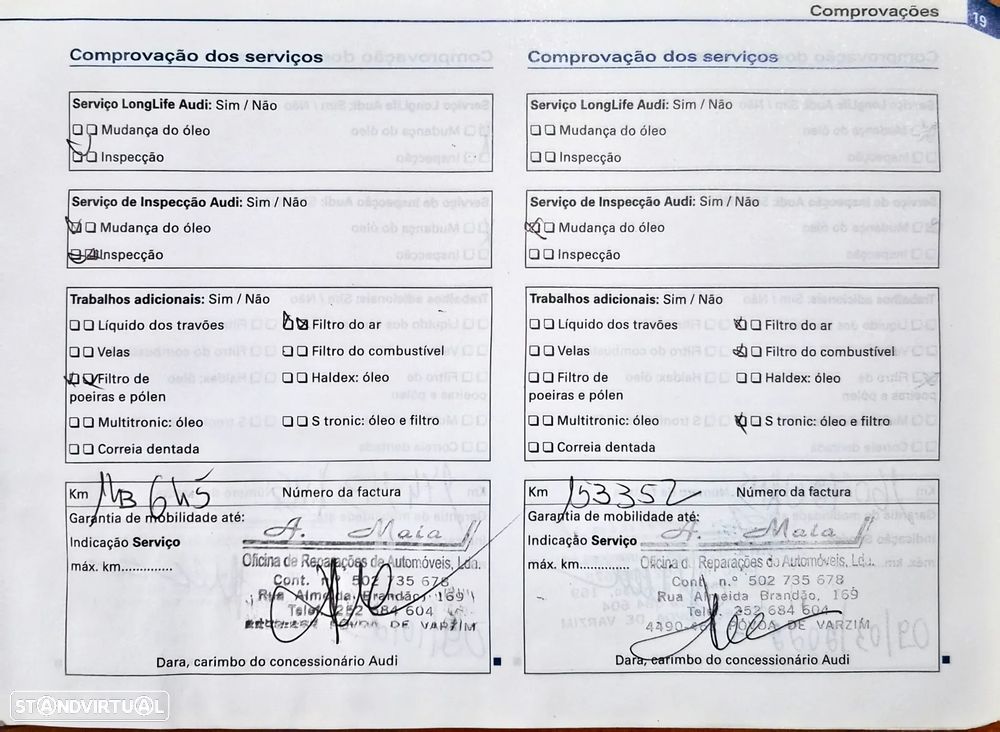 Comprovações
19
Comprovação dos serviços
Serviço LongLife Audi: Sim / Não
Mudança do óleo
Inspecção
Serviço de Inspecção Audi: Sim / Não
Mudança do óleo
Inspecção
Trabalhos adicionais: Sim / Não
Líquido dos travões Filtro do ar
Velas Filtro do combustível
Filtro de Haldex: óleo
poeiras e pólen
Multitronic: óleo S tronic: óleo e filtro
Correia dentada
Km Número da factura
Garantia de mobilidade até:
Indicação Serviço A. Maia
máx. km.............. Oficina de Reparações de Automóveis, Lda.
Cont. n.º 502 735 678
Rua Almeida Brandão, 169
Telef. 252 684 604
PÓVOA DE VARZIM
Dara, carimbo do concessionário Audi
Comprovação dos serviços
Serviço LongLife Audi: Sim / Não
Mudança do óleo
Inspecção
Serviço de Inspecção Audi: Sim / Não
Mudança do óleo
Inspecção
Trabalhos adicionais: Sim / Não
Líquido dos travões Filtro do ar
Velas Filtro do combustível
Filtro de Haldex: óleo
poeiras e pólen
Multitronic: óleo S tronic: óleo e filtro
Correia dentada
Km 153352 Número da factura
Garantia de mobilidade até:
Indicação Serviço A. Maia
máx. km.............. Oficina de Reparações de Automóveis, Lda.
Cont. n.º 502 735 678
Rua Almeida Brandão, 169
Telef. 252 684 604
PÓVOA DE VARZIM
Dara, carimbo do concessionário Audi
STANDVIRTUAL